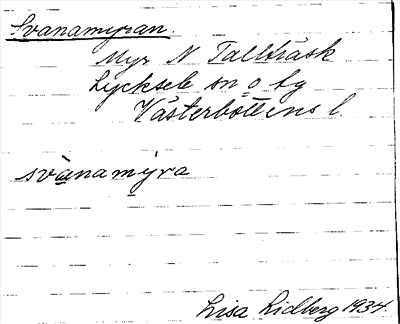 Svanamyran.
Myr N Tallträsk
Lycksele sn o by
Västerbottens l.
svànamýra
Lisa Lidberg 1934.